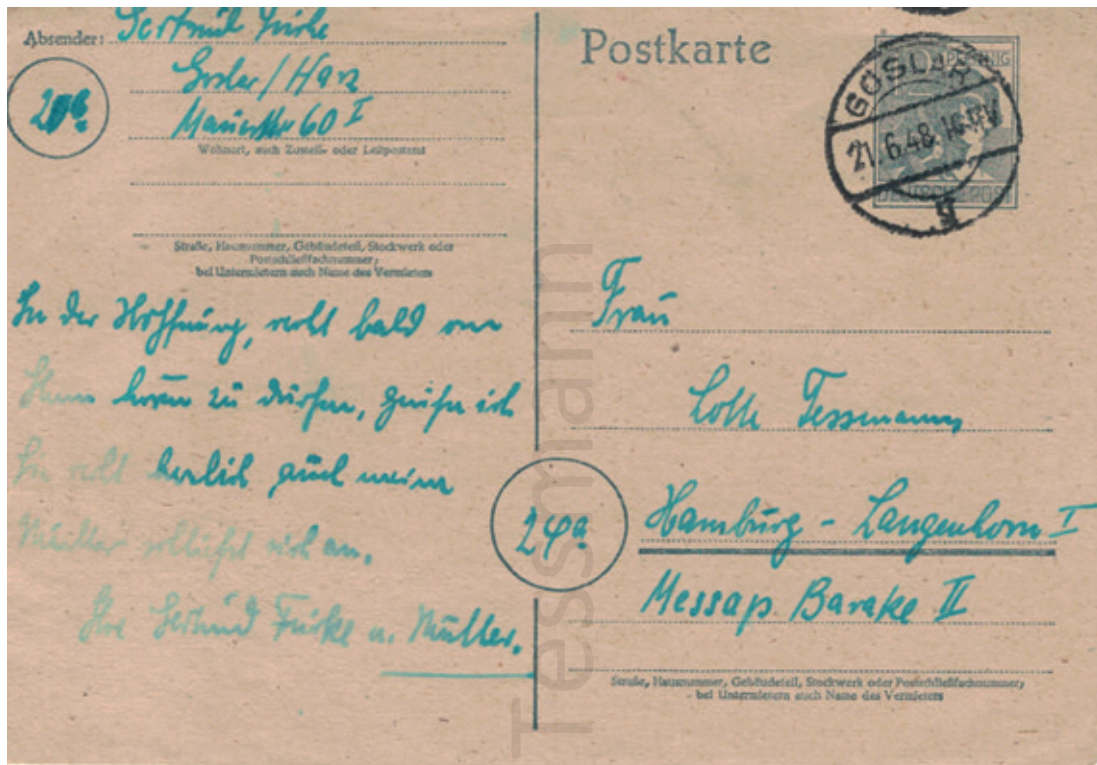 Absender: Gertrud Fürke
Goslar/Harz
Mauerstr 60 I
Wohnort, auch Zustell- oder Leitpostamt
Straße, Hausnummer, Gebäudeteil, Stockwerk oder
Postschließfachnummer;
bei Untermietern auch Name des Vermieters
In der Hoffnung, recht bald von
Ihnen hören zu dürfen, grüße ich
Sie recht herzlich auch meine
Mutter schließt sich an.
Ihre Gertrud Fürke u. Mutter.
Postkarte
PFENNIG
DEUTSCHE POST
GOSLAR
21.6.48.16
Frau
Lotte Tessmann
24a
Hamburg - Langenhorn I
Messap Barake II
Straße, Hausnummer, Gebäudeteil, Stockwerk oder Postschließfachnummer;
bei Untermietern auch Name des Vermieters
Tessmann